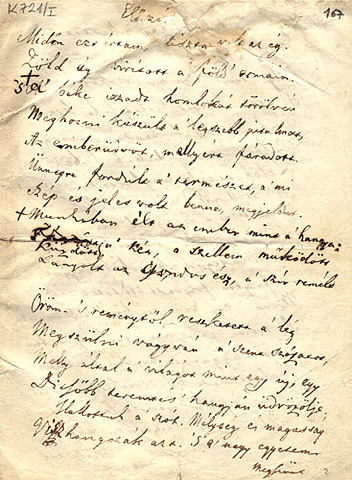 K 721/I
167
Előszó.
Midőn ezt irtam, tiszta volt az ég.
Zöld ág virított a' föld ormain.
+
S a' béke izzadt homlokát törölvén
Meghozni készült a' legszebb jutalmat,
Az emberüdvöt, mellyért fáradott.
Ünnepre fordult a' természet, a' mi
Szép és jeles volt benne, megjelent.
+ Munkában élt az ember mint a' hangya:
a' kéz, a' szellem működött
Küzdött
Lángolt a gondos ész, a' szív remélt
Öröm- 's reménytől reszketett a' lég
Megszülni vágyván a' szent szózatot,
Melly által a' világot mint egy új, egy
Dicsőbb teremtés hangján üdvözölje,
Hallottuk a' szót. Mélység és magasság
Visszhangozák azt. S a' nagy egyetem
Megszünt